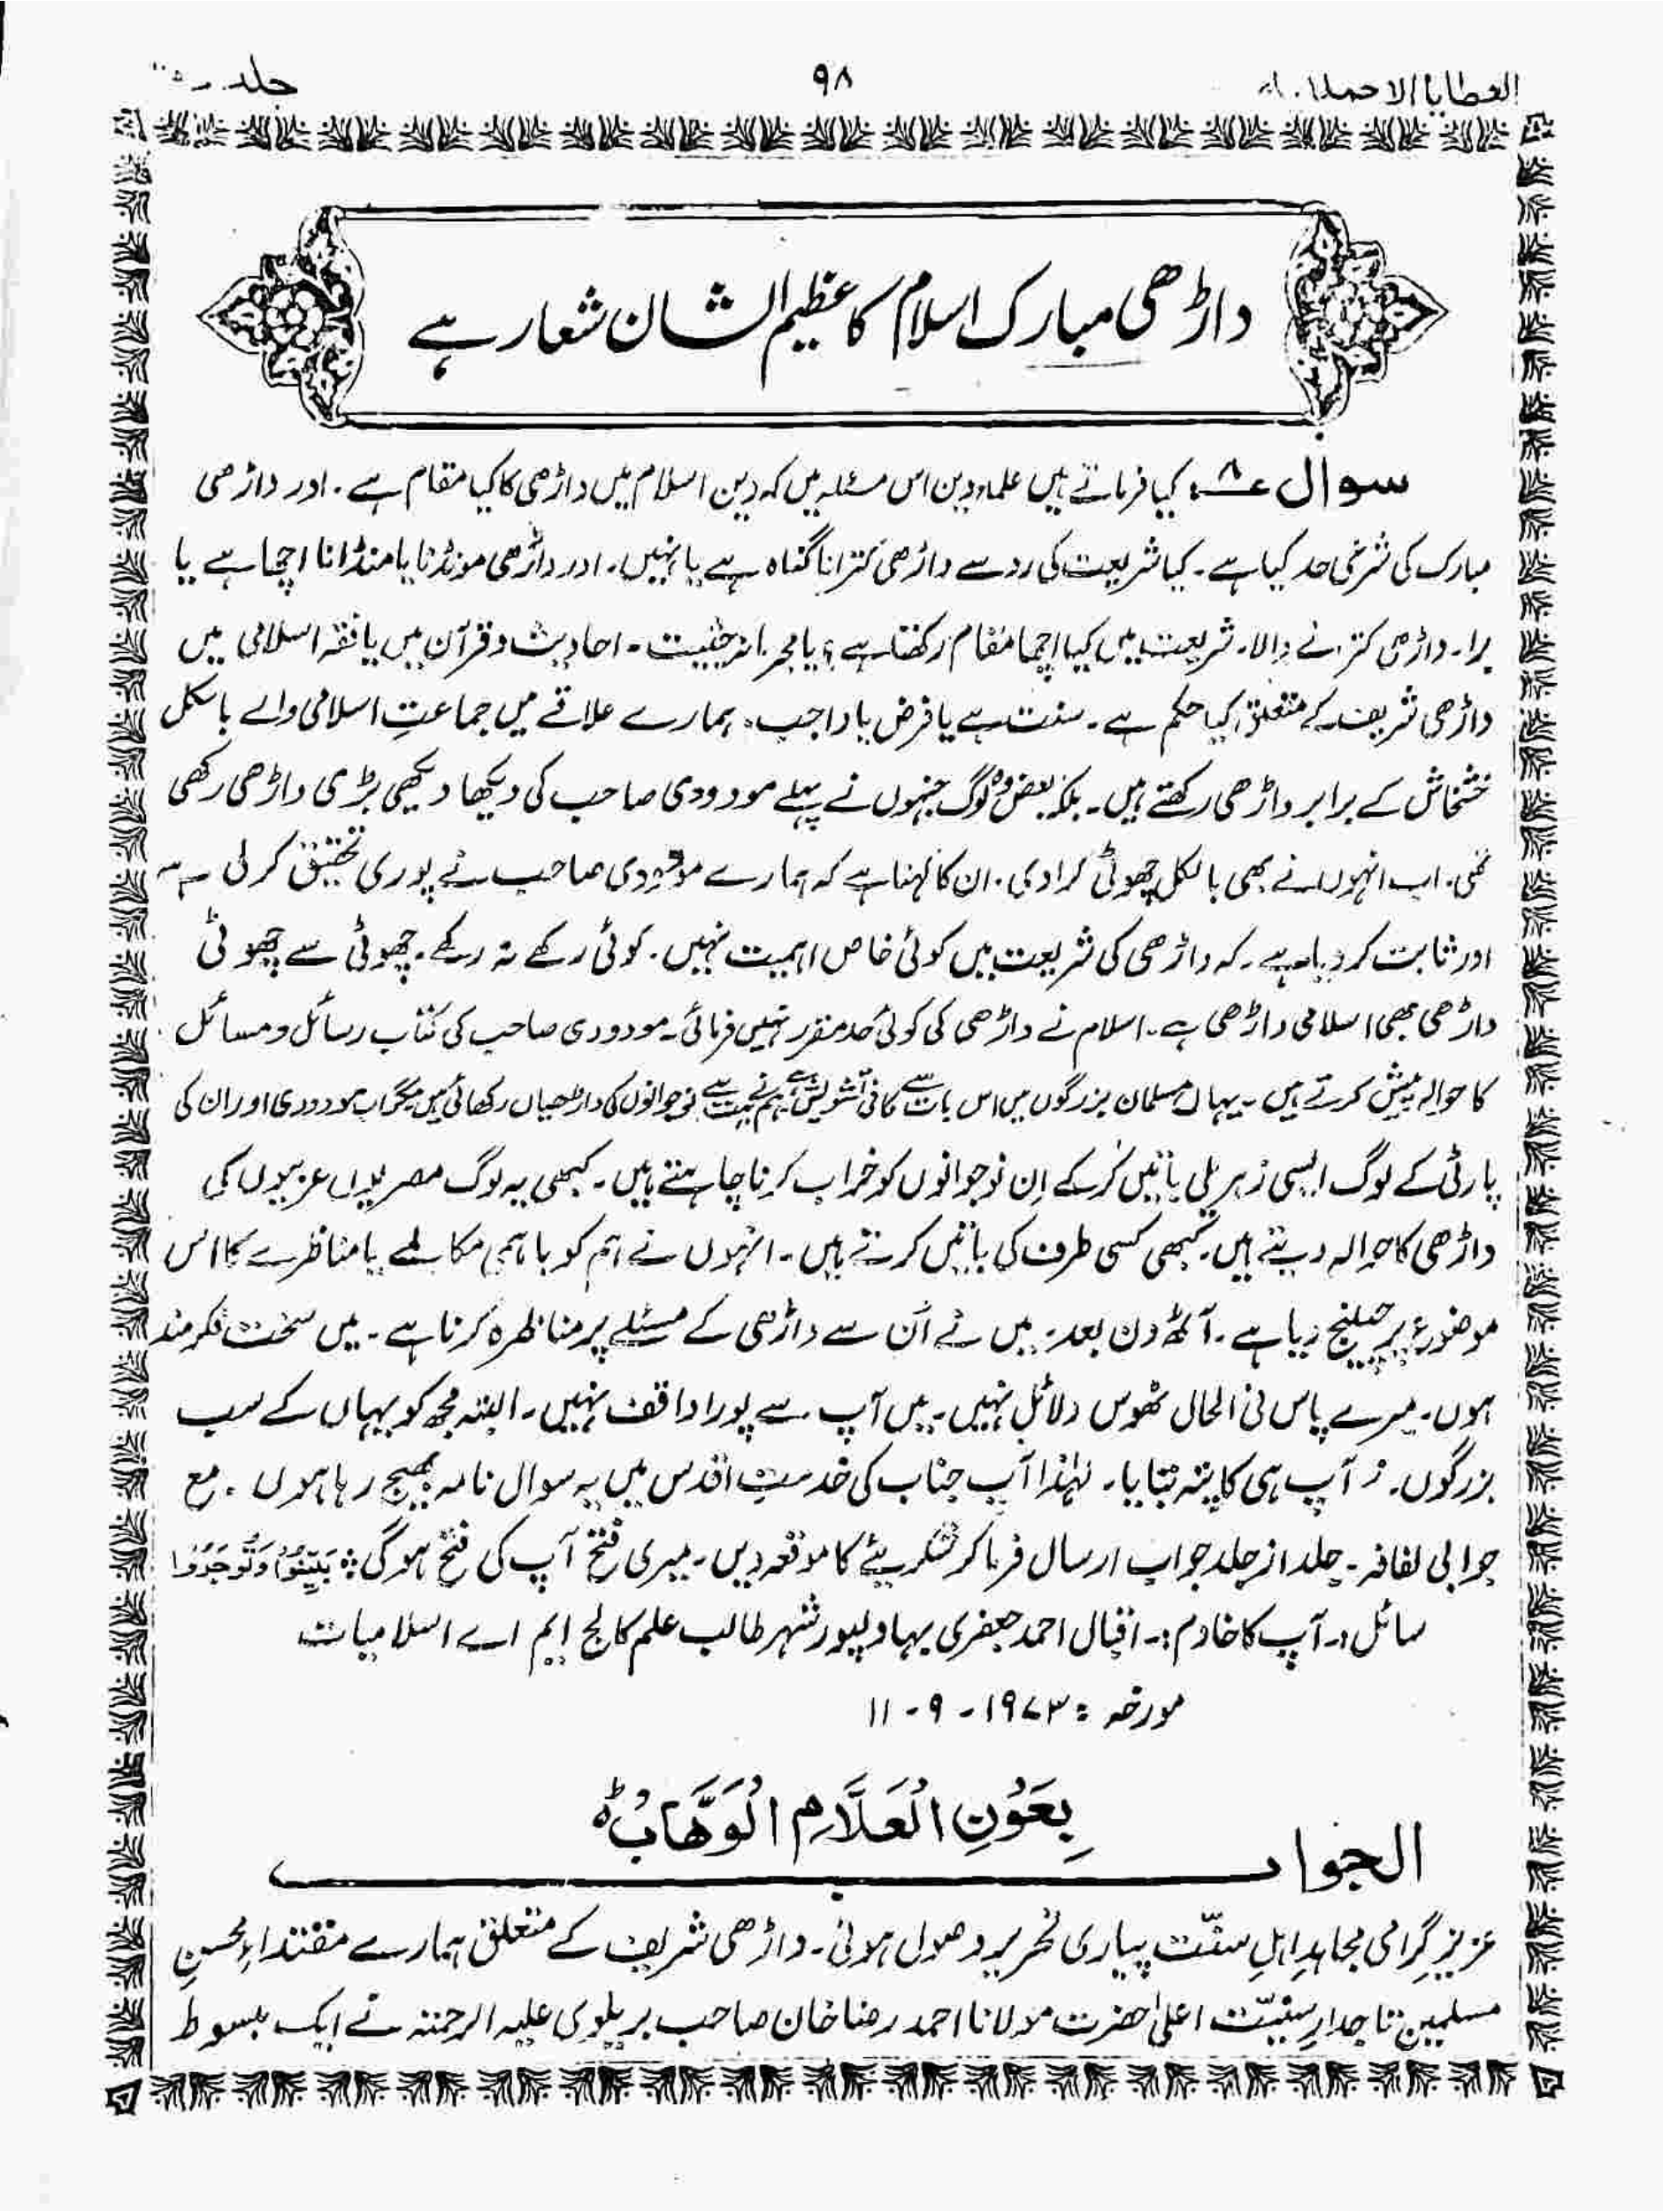 العطایا الاحمدیہ ۹۸ جلد
داڑھی مبارک اسلام کا عظیم الشان شعار ہے
سوال ۸: کیا فرماتے ہیں علماء دین اس مسئلہ میں کہ دین اسلام میں داڑھی کا کیا مقام ہے۔ اور داڑھی
مبارک کی شرعی حد کیا ہے۔ کیا شریعت کی رو سے داڑھی کترانا گناہ ہے یا نہیں۔ اور داڑھی مونڈنا یا منڈانا اچھا ہے یا
برا۔ داڑھی کترانے والا۔ شریعت میں کیا اچھا مقام رکھتا ہے؟ یا مجرمانہ حیثیت۔ احادیث و قرآن میں یا فقہ اسلامی میں
داڑھی شریف کے متعلق کیا حکم ہے۔ سنت ہے یا فرض یا واجب۔ ہمارے علاقے میں جماعتِ اسلامی والے بالکل
خشخاش کے برابر داڑھی رکھتے ہیں۔ بلکہ بعض وہ لوگ جنہوں نے پہلے مودودی صاحب کی دیکھا دیکھی بڑی داڑھی رکھی
تھی۔ اب انہوں نے بھی بالکل چھوٹی کرادی۔ ان کا کہنا ہے کہ ہمارے مودودی صاحب نے پوری تحقیق کر لی ہے
اور ثابت کر دیا ہے۔ کہ داڑھی کی شریعت میں کوئی خاص اہمیت نہیں۔ کوئی رکھے نہ رکھے۔ چھوٹی سے چھوٹی
داڑھی بھی اسلامی داڑھی ہے۔ اسلام نے داڑھی کی کوئی حد مقرر نہیں فرمائی۔ مودودی صاحب کی کتاب رسائل و مسائل
کا حوالہ پیش کرتے ہیں۔ یہاں مسلمان بزرگوں میں اس بات سے کافی تشویش ہے ہم نے بہت سے نوجوانوں کو داڑھیاں رکھائی ہیں مگر اب مودودی اور ان کی
پارٹی کے لوگ ایسی زہریلی باتیں کر کے اِن نوجوانوں کو خراب کرنا چاہتے ہیں۔ کبھی یہ لوگ مصریوں عربیوں کی
داڑھی کا حوالہ دیتے ہیں۔ کبھی کسی طرف کی باتیں کرتے ہیں۔ انہوں نے ہم کو باہمی مکالمے یا مناظرے کا اس
موضوع پر چیلنج دیا ہے۔ آٹھ دن بعد۔ میں نے اُن سے داڑھی کے مسئلے پر مناظرہ کرنا ہے۔ میں سخت فکر مند
ہوں۔ میرے پاس فی الحال ٹھوس دلائل نہیں۔ میں آپ سے پورا واقف نہیں۔ البتہ مجھ کو یہاں کے سب
بزرگوں نے آپ ہی کا پتہ بتایا۔ لہٰذا آپ جناب کی خدمتِ اقدس میں یہ سوال نامہ بھیج رہا ہوں۔ مع
جوابی لفافہ۔ جلد از جلد جواب ارسال فرما کر شکریئے کا موقعہ دیں۔ میری فتح آپ کی فتح ہوگی: بَيِّنُوْا وَتُوجَرُوْا
سائل:۔ آپ کا خادم:۔ اقبال احمد جعفری بہاولپور شہر طالب علم کالج ایم اے اسلامیات
مورخہ: ۱۹۷۳-۹-۱۱
بِعَوْنِ الْعَلَّامِ الْوَهَّابْ ط
الجواب
عزیز گرامی مجاہدِ اہلِ سنّت پیاری تحریر وصول ہوئی۔ داڑھی شریف کے متعلق ہمارے مقتداء محسنِ
مسلمین تاجدارِ سنیّت اعلیٰ حضرت مولانا احمد رضا خان صاحب بریلوی علیہ الرحمتہ نے ایک مبسوط